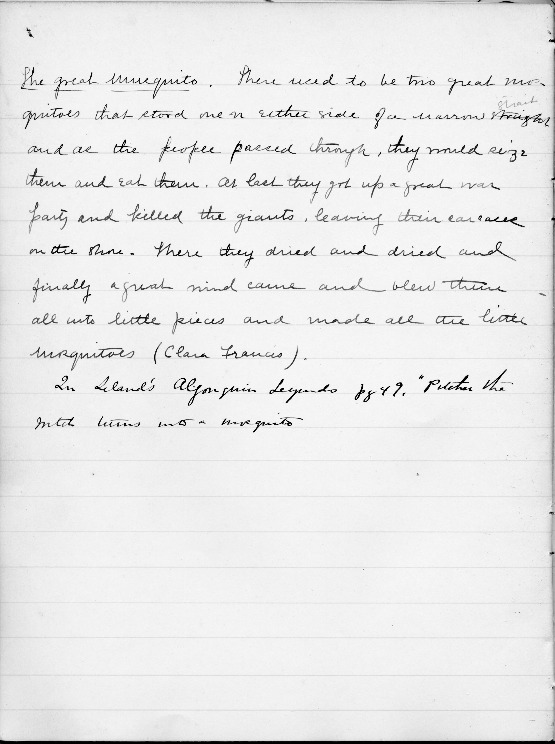 The great Musquito. There used to be two great mos-
quitoes that stood one on either side of a narrow straight strait
and as the people passed through, they would seize
them and eat them. At last they got up a great war
party and killed the giants, leaving their carcases
on the shore. There they dried and dried and
finally a great wind came and blew them
all into little pieces and made all the little
mosquitoes (Clara Francis).
In Leland's Algonquin Legends pg 49. "Pitcher the
witch turns into a mosquito